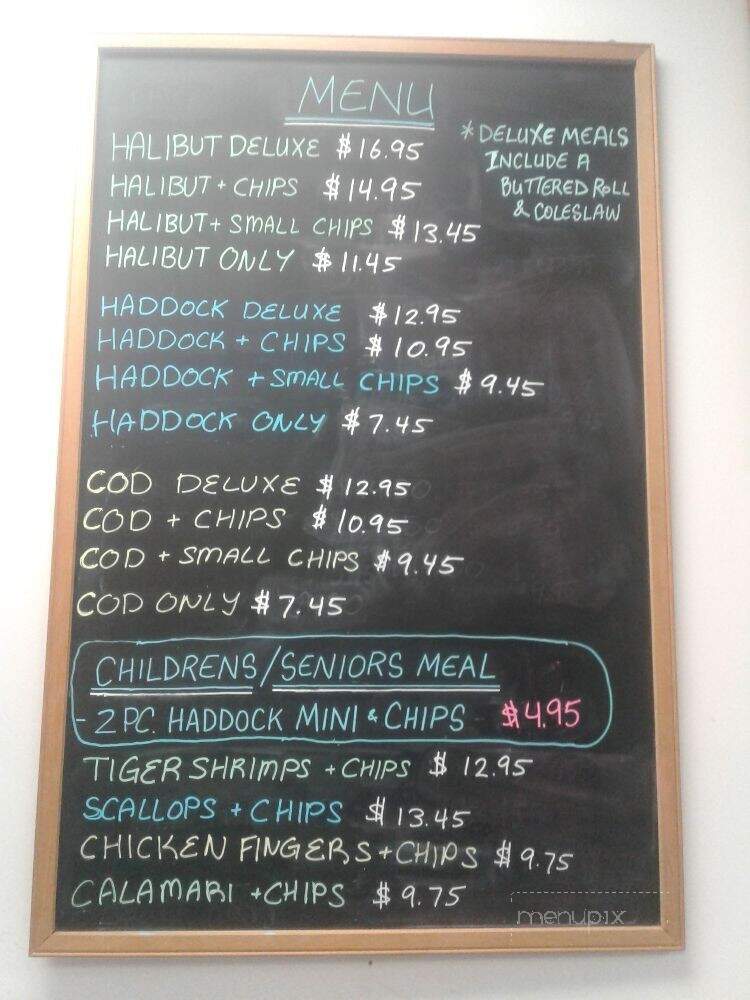 MENU
HALIBUT DELUXE $16.95
HALIBUT + CHIPS $14.95
HALIBUT + SMALL CHIPS $13.45
HALIBUT ONLY $11.45
* DELUXE MEALS
INCLUDE A
BUTTERED ROLL
& COLESLAW
HADDOCK DELUXE $12.95
HADDOCK + CHIPS $10.95
HADDOCK + SMALL CHIPS $9.45
HADDOCK ONLY $7.45
COD DELUXE $12.95
COD + CHIPS $10.95
COD + SMALL CHIPS $9.45
COD ONLY $7.45
CHILDRENS/SENIORS MEAL
- 2 PC. HADDOCK MINI & CHIPS $4.95
TIGER SHRIMPS + CHIPS $12.95
SCALLOPS + CHIPS $13.45
CHICKEN FINGERS + CHIPS $9.75
CALAMARI + CHIPS $9.75
menupix